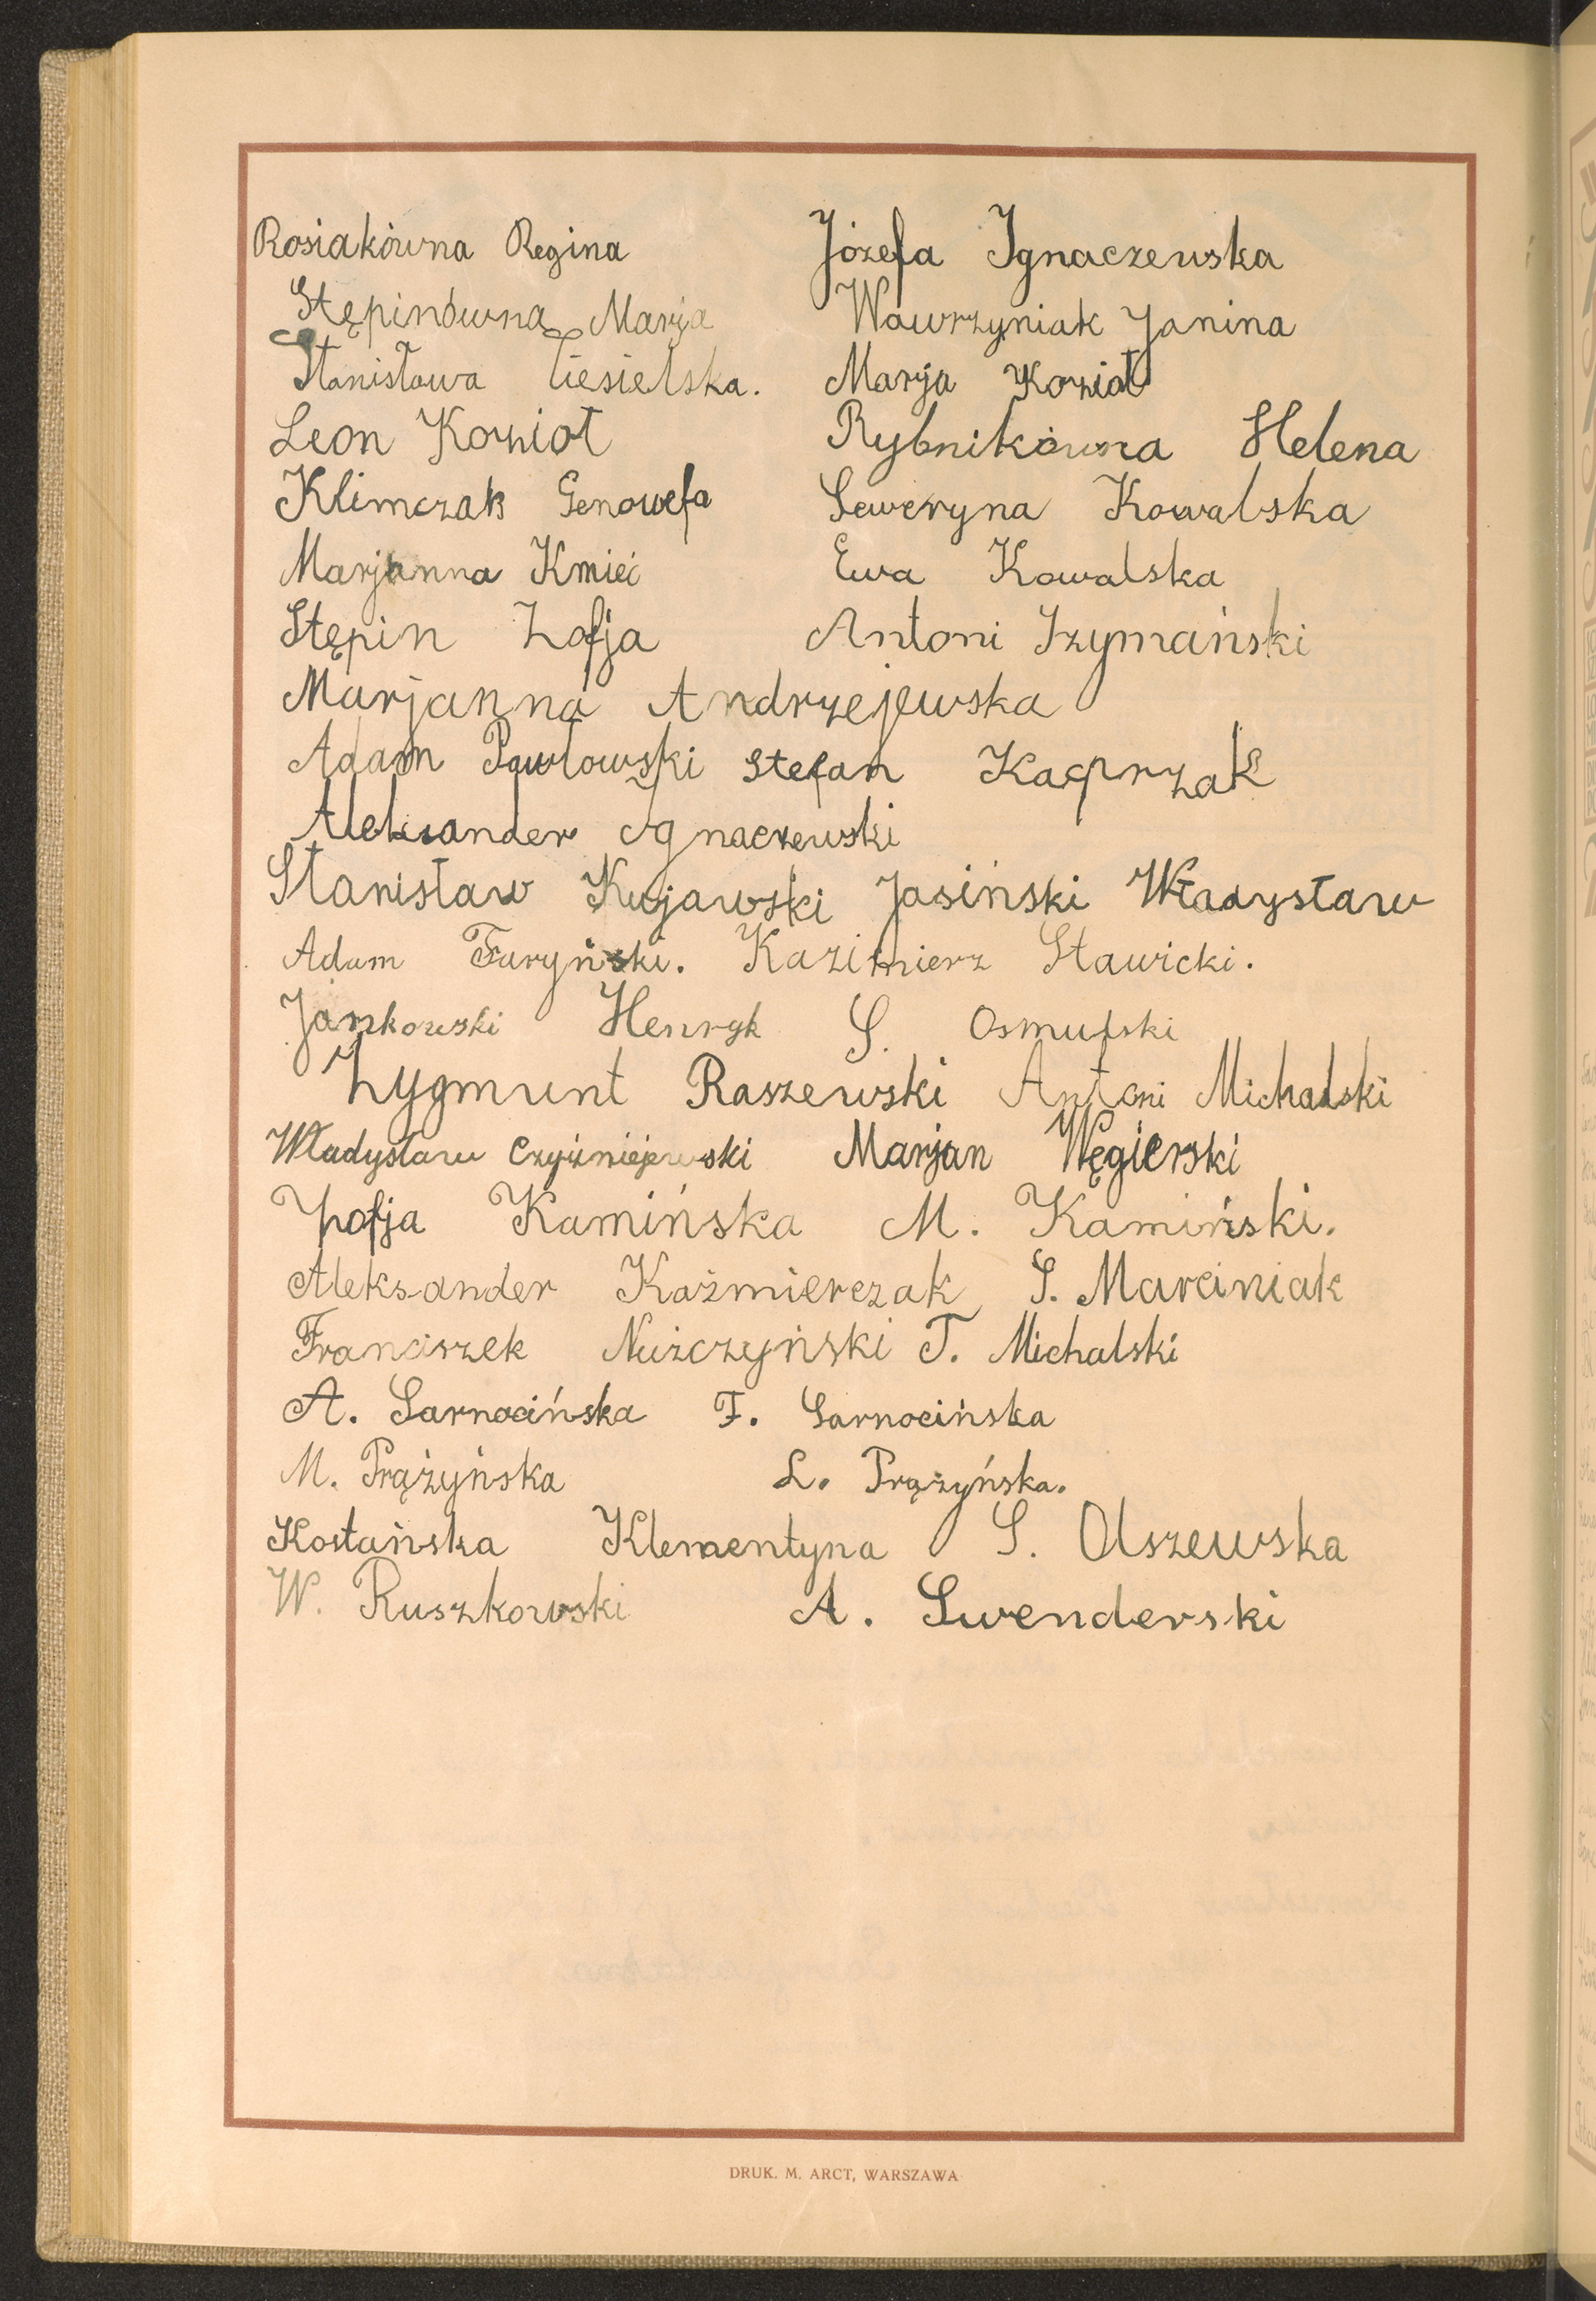 Rosiakówna Regina Józefa Ignaczewska
Stępinówna Marja Wawrzyniak Janina
Stanisława Ciesielska. Marja Kozioł
Leon Kozioł Rybnikówna Helena
Klimczak Genowefa Seweryna Kowalska
Marjanna Kmieć Ewa Kowalska
Stępin Zofja Antoni Szymański
Marjanna Andrzejewska
Adam Pawłowski Stefan Kacprzak
Aleksander Ignaczewski
Stanisław Kujawski Jasiński Władysław
Adam Furyński. Kazimierz Sławicki.
Jankowski Henryk S. Osmulski
Zygmunt Raszewski Antoni Michalski
Władysław Czyżniejewski Marjan Węgierski
Zofja Kamińska M. Kamiński.
Aleksander Kaźmierczak S. Marciniak
Franciszek Nużczyński T. Michalski
A. Sarnocińska F. Sarnocińska
M. Prążyńska L. Prążyńska.
Kostańska Klementyna S. Olszewska
W. Ruszkowski A. Swenderski
DRUK. M. ARCT, WARSZAWA